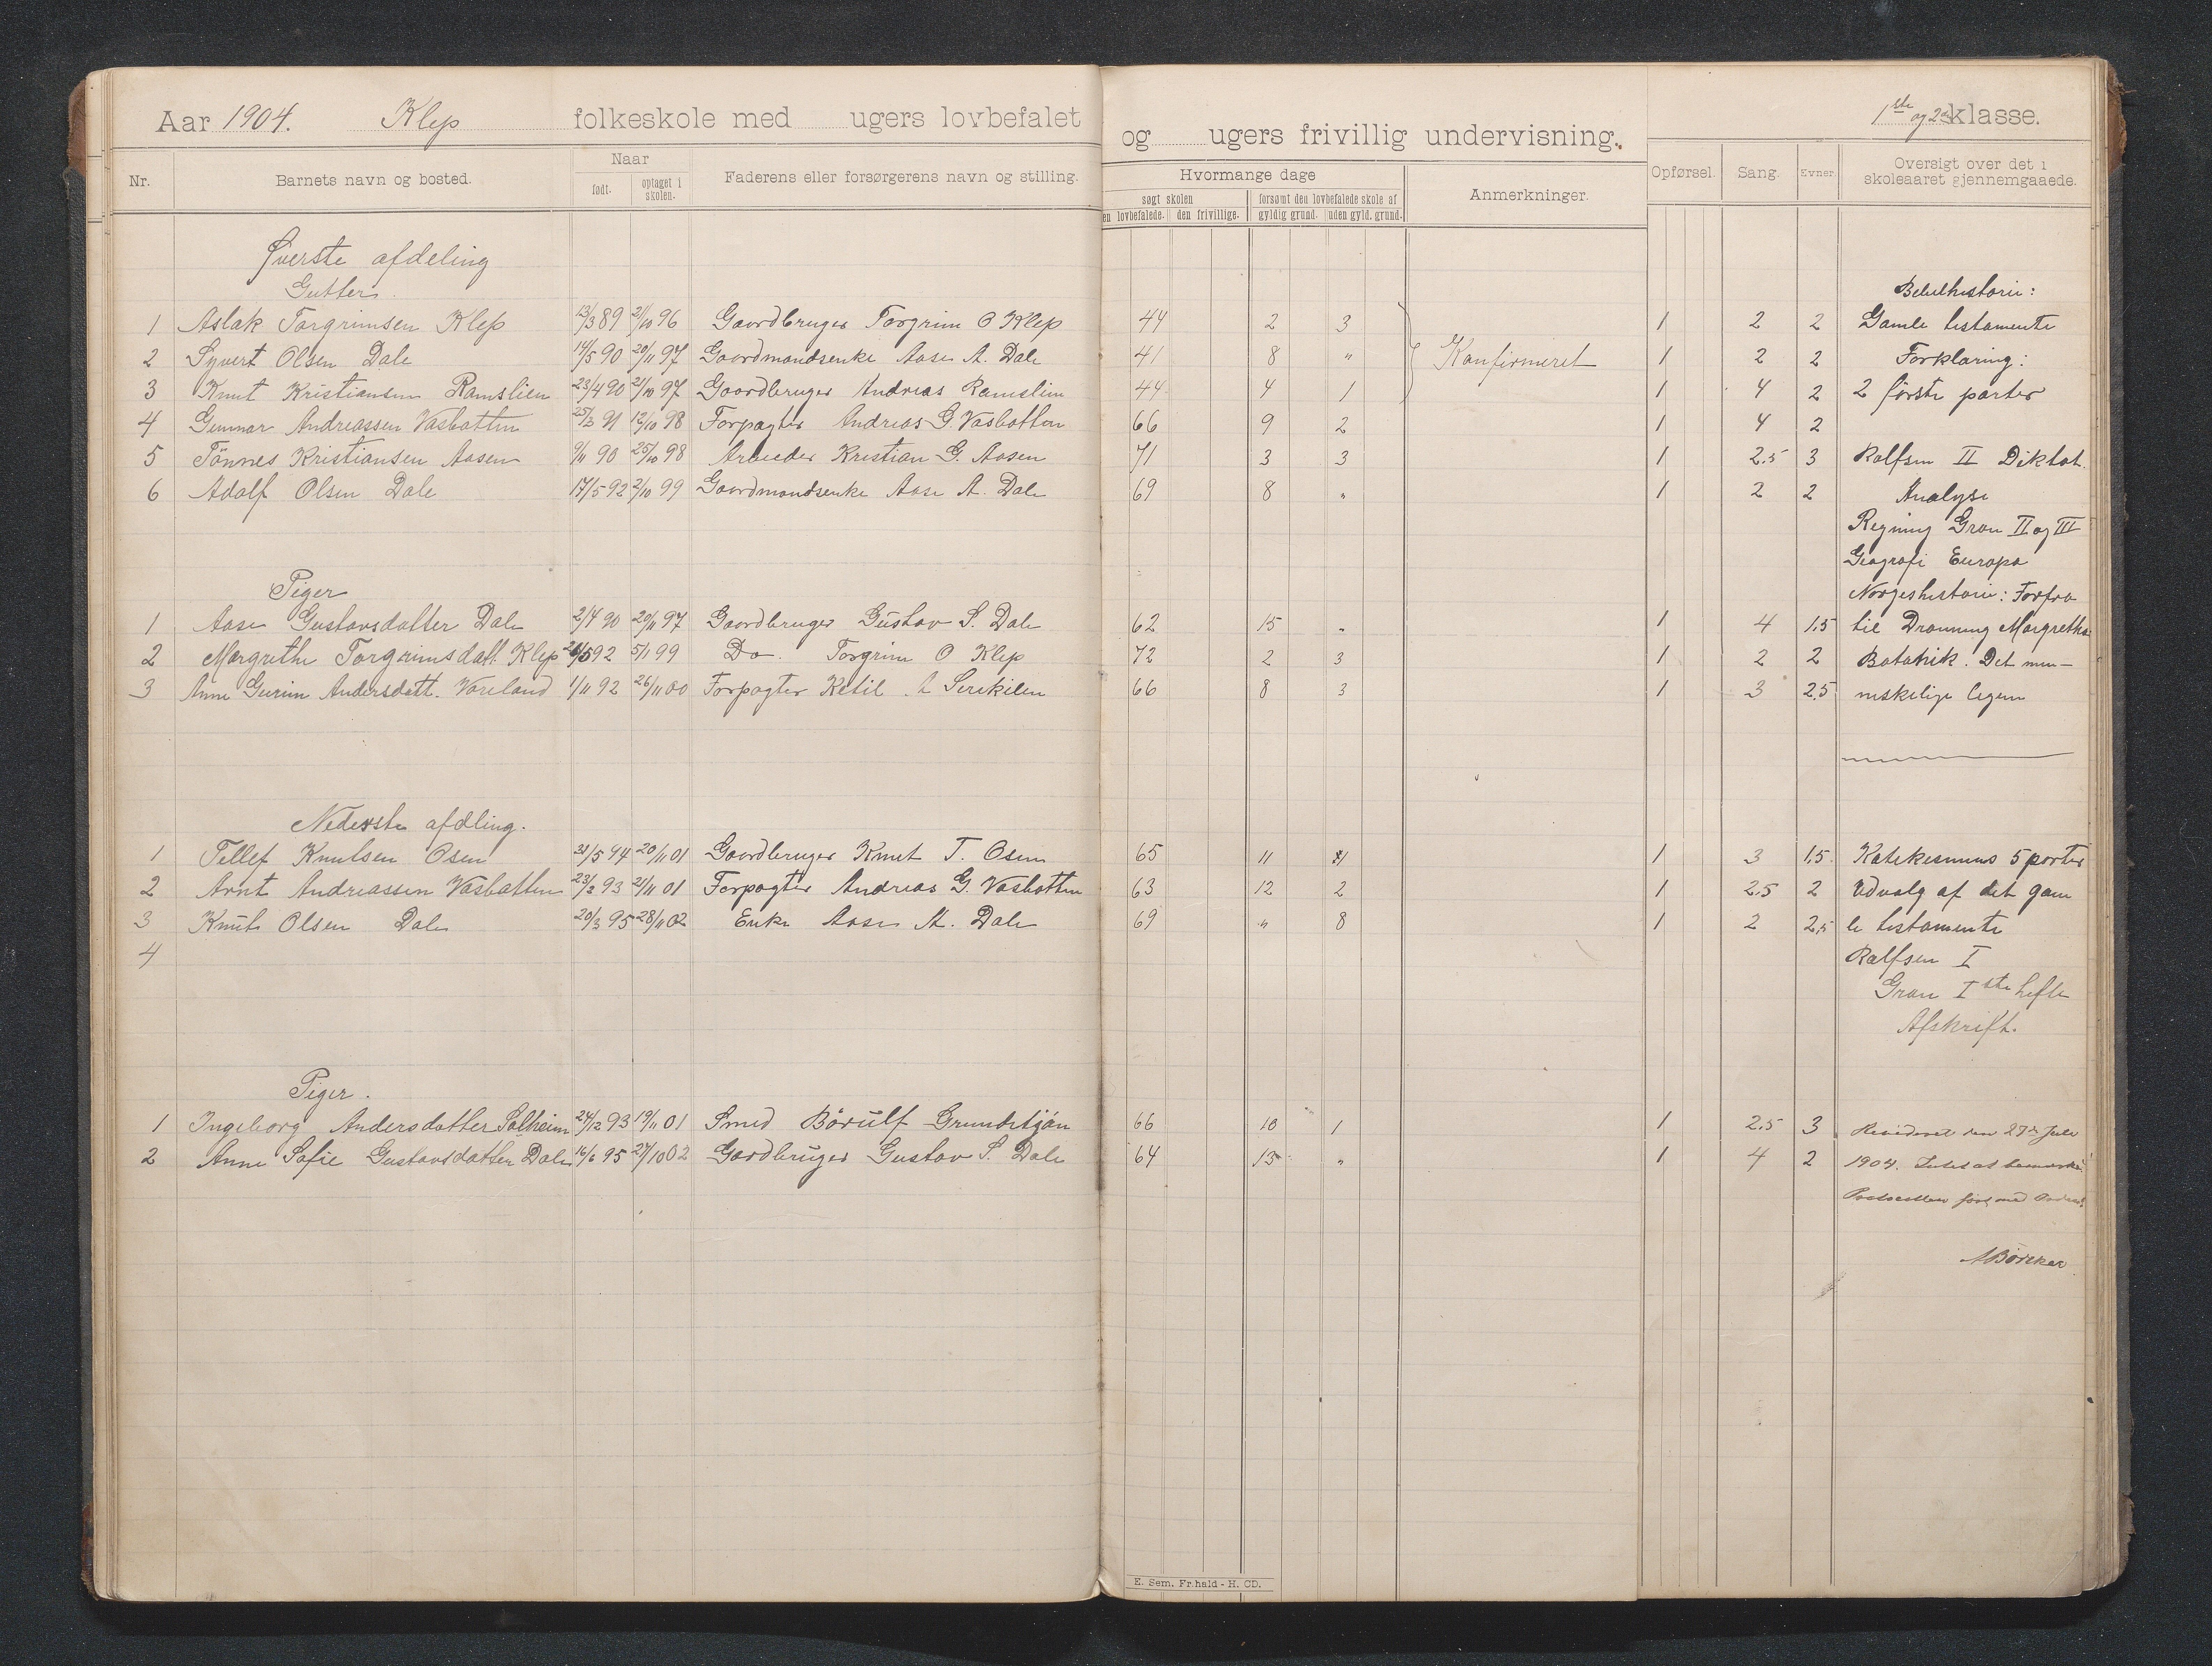 Aar 1904. Klep folkeskole med ugers lovbefalet og ugers frivillig undervisning. 1ste og 2 klasse.
Nr. Barnets navn og bosted. Naar født. optaget i skolen. Faderens eller forsørgerens navn og stilling. Hvormange dage søgt skolen den lovbefalede. den frivillige. forsømt den lovbefalede skole af gyldig grund. uden gyld. grund. Anmerkninger. Opførsel. Sang. Evner. Oversigt over det i skoleaaret gjennemgaaede.
Øverste afdeling
Gutter. Bibelhistorie:
1 Aslak Torgrimsen Klep 13/3 89 21/10 96 Gaardbruger Torgrim O Klep 44 2 3 1 2 2 Gamle testamente
2 Syvert Olsen Dale 14/5 90 20/11 97 Gaardmandsenke Aase A. Dale 41 8 " Konfirmeret 1 2 2 Forklaring:
3 Knut Kristiansen Ramslien 23/4 90 21/10 97 Gaardbruger Andreas Ramslien 44 4 1 1 4 2 2 første parter
4 Gunnar Andreassen Vasbotten 25/2 91 12/10 98 Forpagter Andreas G. Vasbotten 66 9 2 1 4 2
5 Tönnes Kristiansen Aasen 9/11 90 25/10 98 Arbeider Kristian G. Aasen 71 3 3 1 2.5 3 Rolfsen II Diktat.
6 Adolf Olsen Dale 17/5 92 2/10 99 Gaardmandsenke Aase A. Dale 69 8 " 1 2 2 Analyse
Regning Gran II og III
Geografi Europa
Piger Norgeshistorie: Forfra
1 Aase Gustavsdatter Dale 2/4 90 20/11 97 Gaardbruger Gustav S. Dale 62 15 " 1 4 1.5 til Dronning Margretha
2 Margrethe Torgrimsdatt. Klep /5 92 5/1 99 Do. Torgrim O Klep 72 2 3 1 2 2 Botanik. Det men-
3 Anne Gurine Andersdatt. Vareland 1/11 92 26/11 00 Forpagter Ketil A 66 8 3 1 3 2.5 neskelige legem
Nederste afdling.
1 Tellef Knutsen Osen 21/5 94 20/11 01 Gaardbruger Knut T. Osen 65 11 1 1 3 1.5 Katekesmus 5 parter
2 Arnt Andreassen Vasbotten 23/2 93 21/11 01 Forpagter Andreas G. Vasbotten 63 12 2 1 2.5 2 Udvalg af det gam
3 Knut Olsen Dale 20/3 95 28/11 02 Enke Aase A. Dale 69 " 8 1 2 2.5 le testamente
4 Rolfsen I
Gran I ste hefte
Afskrift.
Piger.
1 Ingeborg Andersdatter Solheim 24/12 93 19/11 01 Smed Börulf Grundetjön 66 10 1 1 2.5 3 Revideret den 27de Juli
2 Anne Sofie Gustavsdatter Dale 16/6 95 27/10 02 Gardbruger Gustav S. Dale 64 13 " 1 4 2 1904. Intet at bemærke.
Protocollen ført med Orden.
E. Sem. Fr.hald - H. CD.